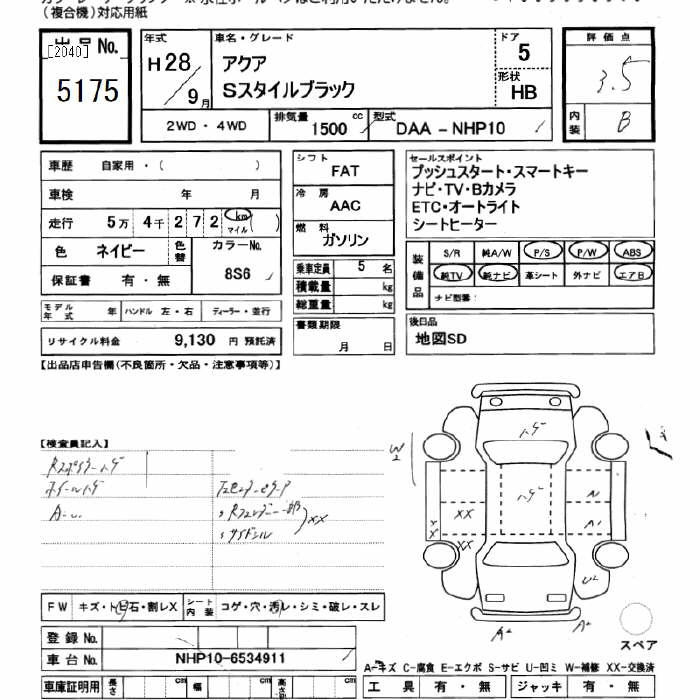 (複合機)対応用紙
出品No.
[2040]
5175
年式
H28/9月
車名・グレード
アクア
Sスタイルブラック
ドア
5
形状
HB
2WD・4WD
排気量
1500 cc
型式
DAA-NHP10
評価点
3.5
内装
B
車歴 自家用・( )
車検 年 月
走行 5万 4千 2 7 2 km マイル( )
色 ネイビー 色替 カラーNo.
8S6
保証書 有・無
シフト
FAT
冷房
AAC
燃料
ガソリン
乗車定員 5 名
積載量 kg
総重量 kg
書類期限
月 日
セールスポイント
プッシュスタート・スマートキー
ナビ・TV・Bカメラ
ETC・オートライト
シートヒーター
装備品
S/R 純A/W P/S P/W ABS
純TV 純ナビ 革シート 外ナビ エアB
ナビ型番:
後日品
地図SD
モデル年式 年 ハンドル 左・右 ディーラー・並行
リサイクル料金 9,130 円 預託済
【出品店申告欄(不良箇所・欠品・注意事項等)】
【検査員記入】
ホイールトゲ
XX
サイドシル
トゲ
トゲ
W2
XX
XX
A1
A1
U2
A2
A2
FW キズ・トビ石・割レX シート内装 コゲ・穴・汚レ・シミ・破レ・スレ
登録No.
車台No. NHP10-6534911
スペア
A-キズ C-腐食 E-エクボ S-サビ U-凹ミ W-補修 XX-交換済
車庫証明用 長さ cm 幅 cm 高さ cm
工具 有・無 ジャッキ 有・無